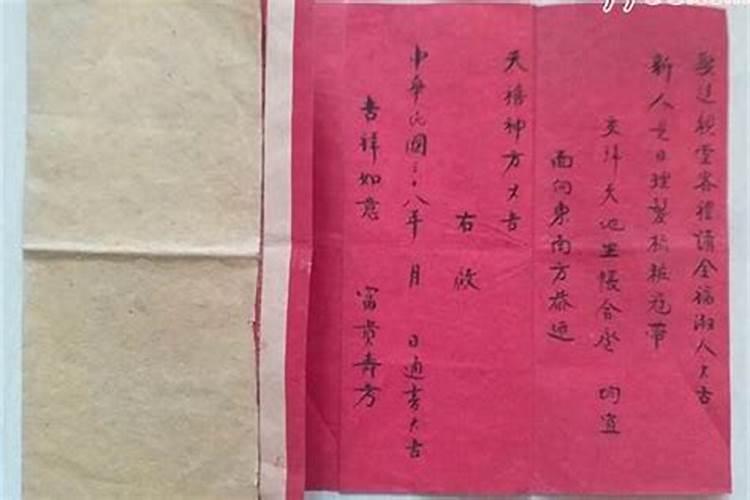 娶送親堂客禮請全福淑人大吉
新人是日理髮梳粧冠帶
交拜天地坐帳合巹 均宜
面向東南方恭迎
天禧神方大吉
右啟
中華民國三十八年 月 日通書大吉
吉祥如意 富貴壽考